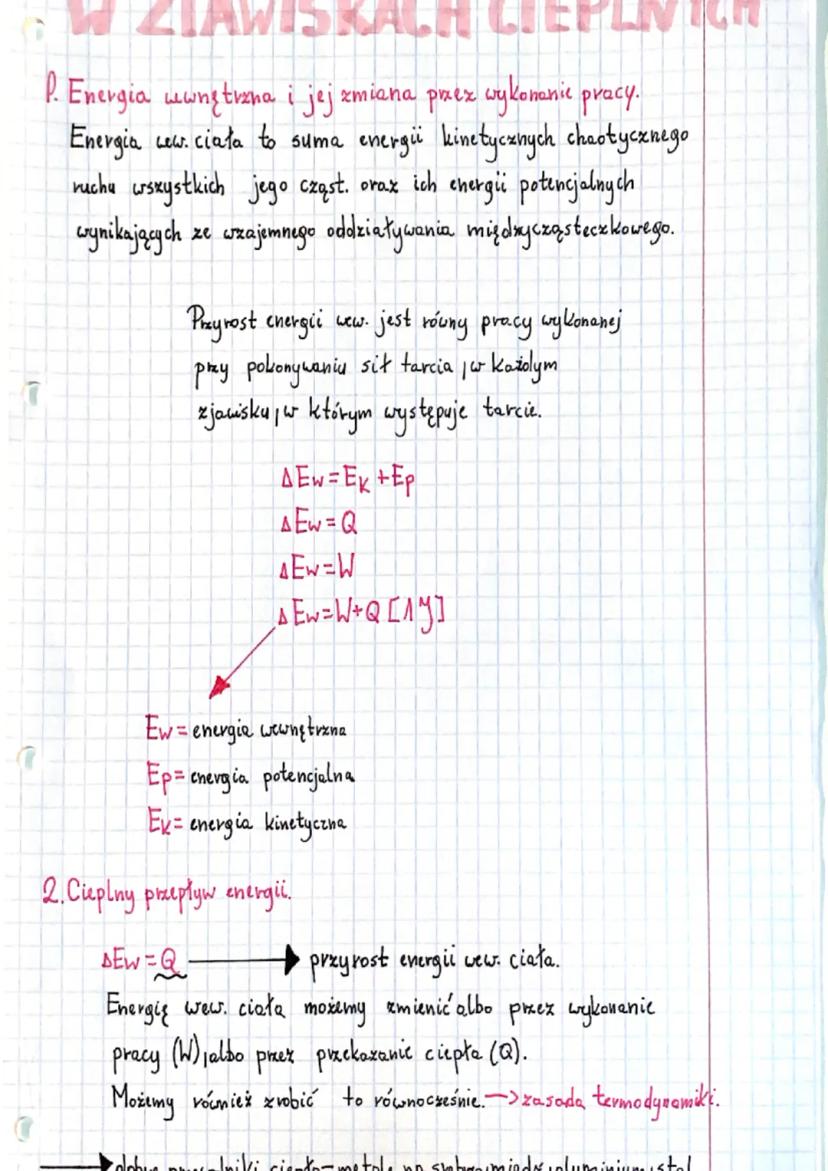 W ZJAWISKACH CIEPLNYCH
1. Energia wewnętrzna i jej zmiana przez wykonanie pracy.
Energia wew. ciała to suma energii kinetycznych chaotycznego
ruchu wszystkich jego cząst. oraz ich energii potencjalnych
wynikających ze wzajemnego oddziaływania międzycząsteczkowego.
Przyrost energii wew. jest równy pracy wykonanej
przy pokonywaniu sił tarcia, w każdym
zjawisku, w którym występuje tarcie.
ΔEw = EK + Ep
ΔEw = Q
ΔEw = W
ΔEw = W + Q [1J]
Ew = energia wewnętrzna
Ep = energia potencjalna
Ek = energia kinetyczna
2. Cieplny przepływ energii.
ΔEw = Q → przyrost energii wew. ciała.
Energię wew. ciała możemy zmienić albo przez wykonanie
pracy (W), albo przez przekazanie ciepła (Q).
Możemy również zrobić to równocześnie. -> zasada termodynamiki.
→ dobre przewodniki ciepła - metale np. srebro, miedź, aluminium, stal